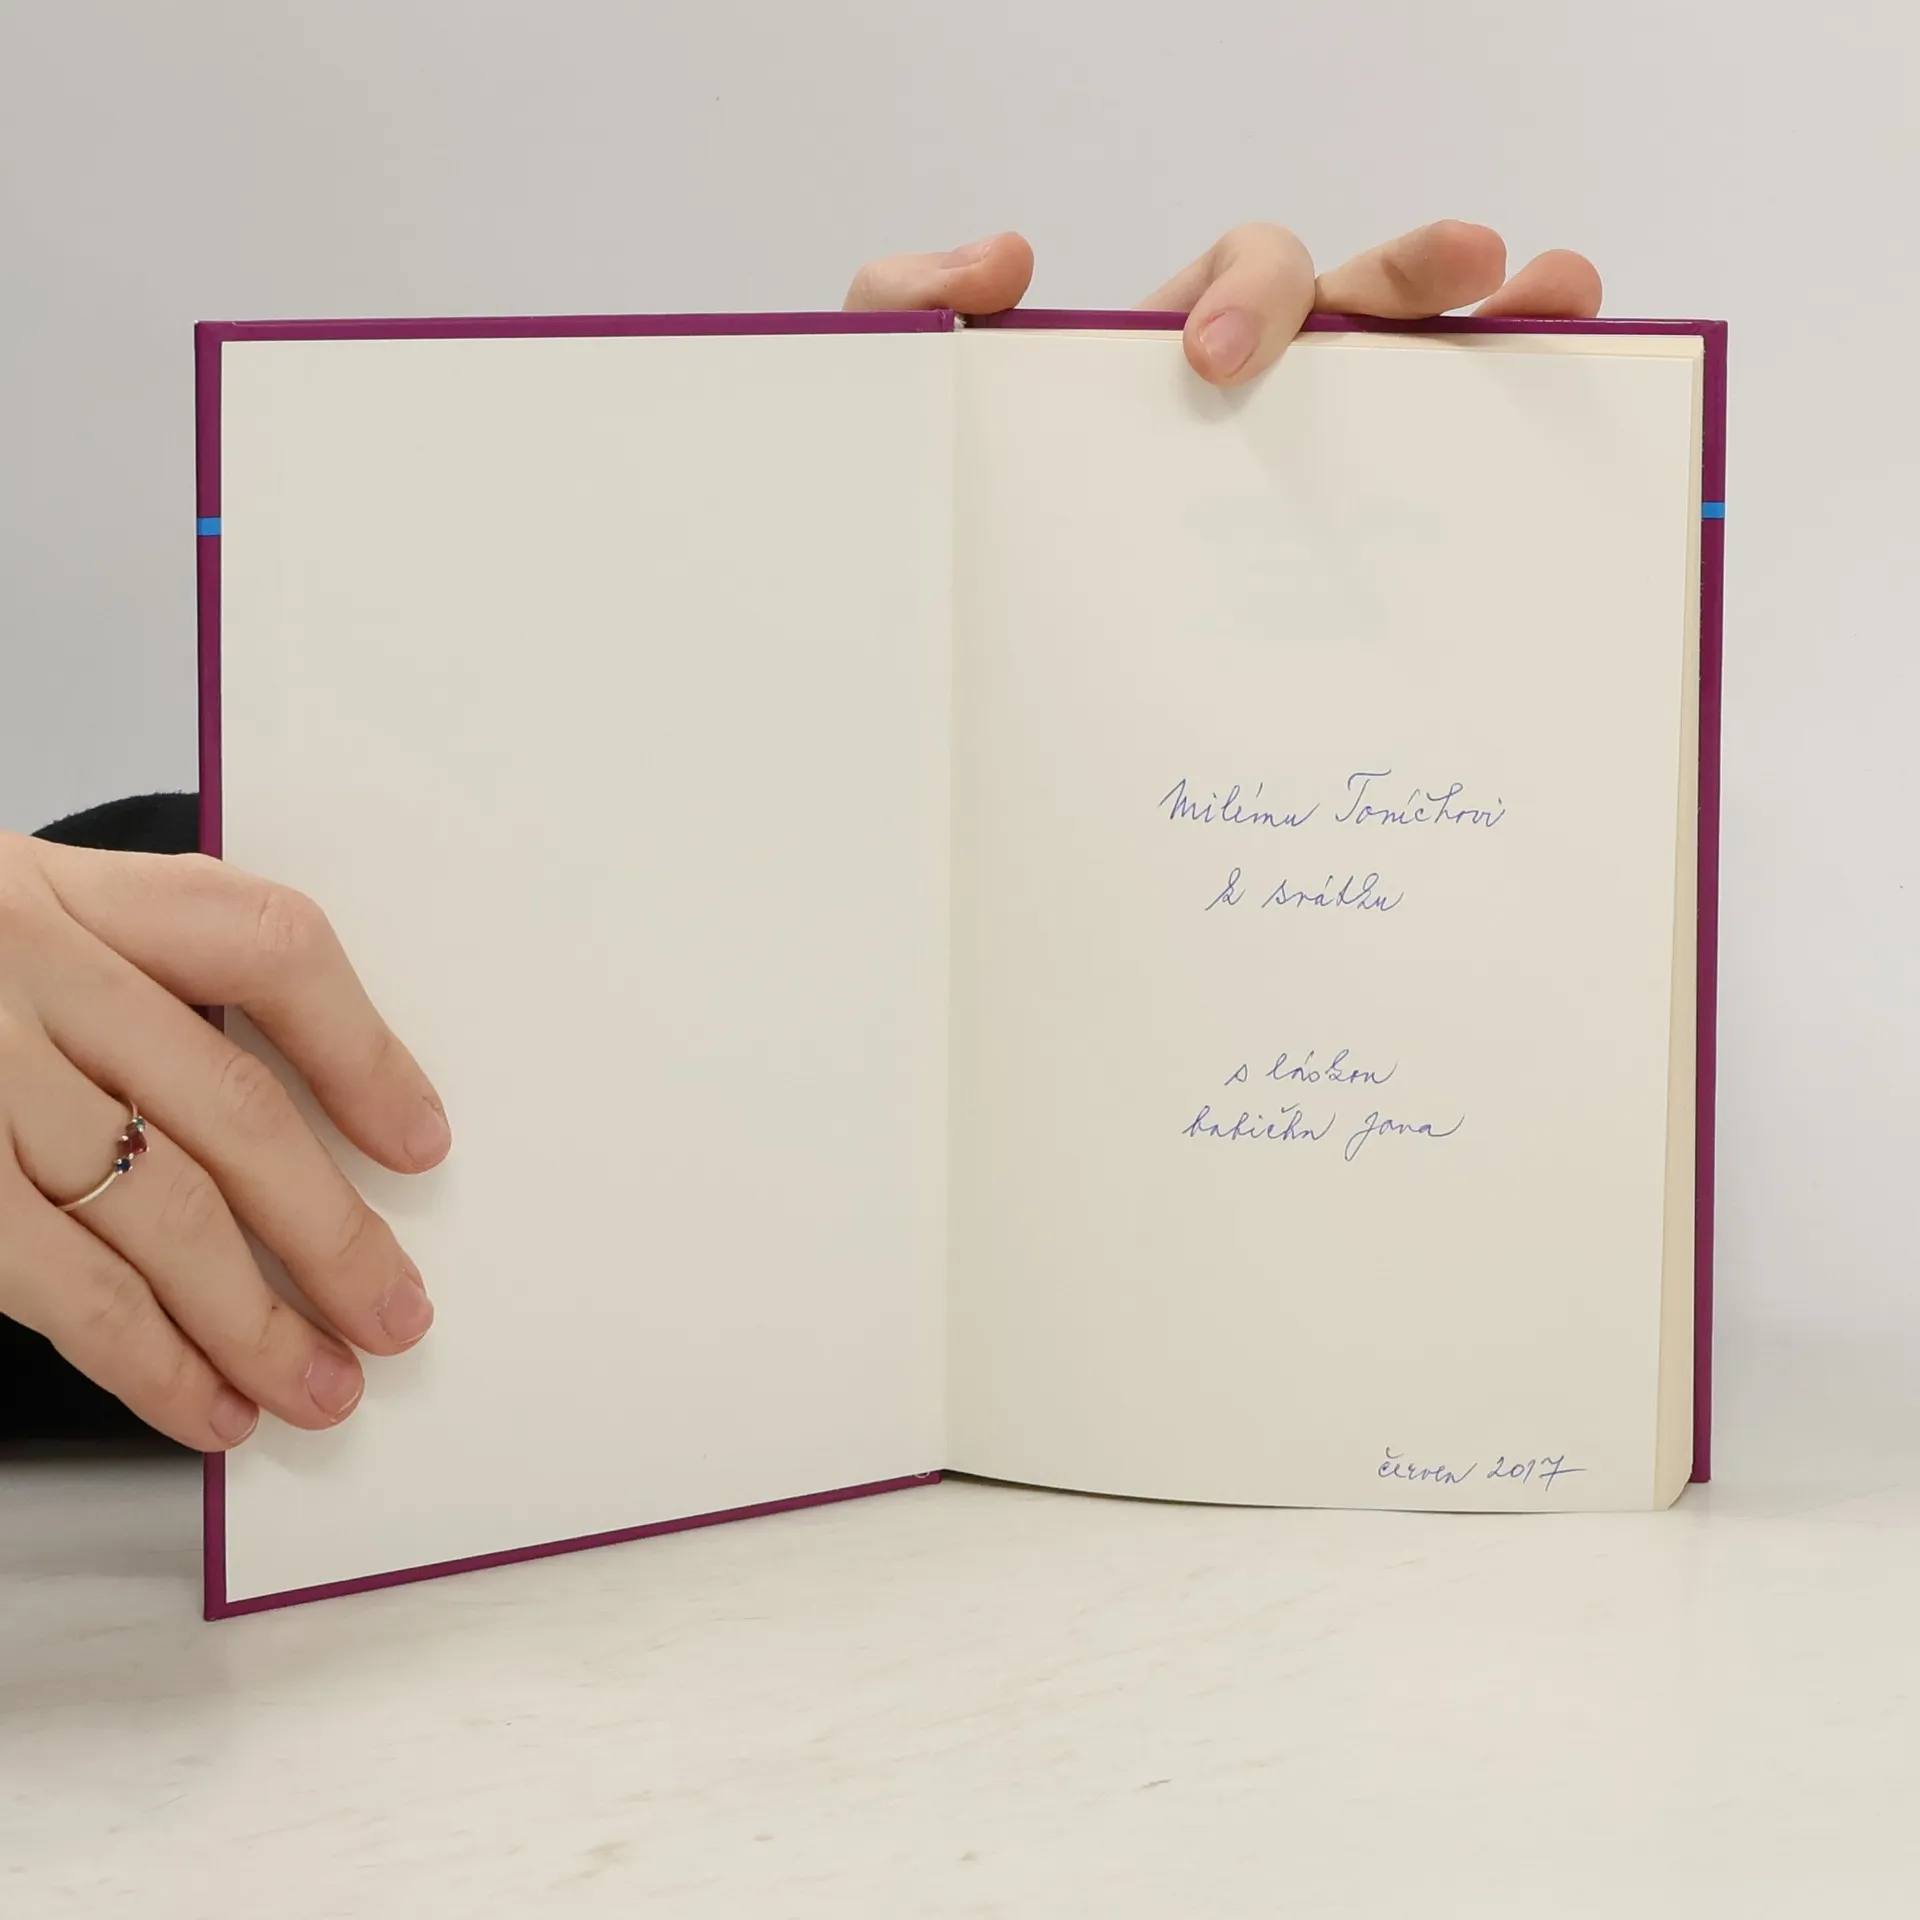 Milému Toníčkovi
k svátku
s láskou
babička Jana
červen 2017